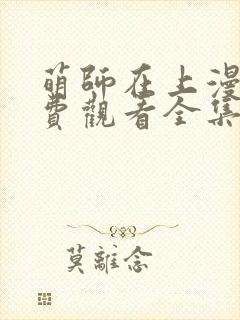 萌師在上漫
費觀看全集
莫離念